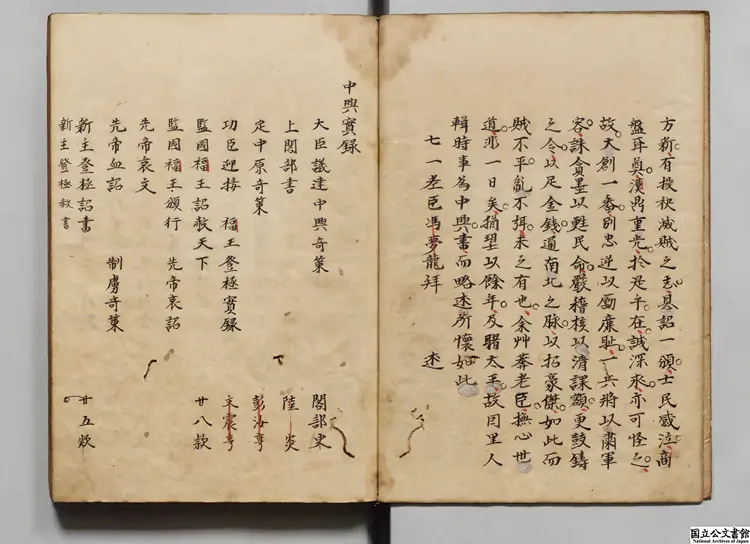 方新有投袂滅賊之志恳詔一頒士民感泣商
盤再奠漢鼎重光於是乎在誠深求亦可怪之
故大創一番別忠逆以勵廉耻一兵將以肅軍
容誅貪墨以甦民命嚴稽核以清課額更鼓鋳
之令以足金錢通南北之脉以招豪傑如此而
賊不平亂不弭未之有也余艸莽老臣撫心世
道非一日矣猶望以餘年及覩太平故因里人
輯時事為中興書而略述所懷如此
七一老臣馮夢龍拜 述
中興實録
大臣議建中興奇策 閣部史
上閣部書 陸炎
定中原奇策 彭汝亨
功臣迎接 福王登極實録 文震亨
監國福王詔敕天下 廿八款
監國福王頒行 先帝哀詔
先帝哀文
先帝血詔 制虜奇策
新主登極詔書 廿五款
新主登極赦書
国立公文書館
National Archives of Japan